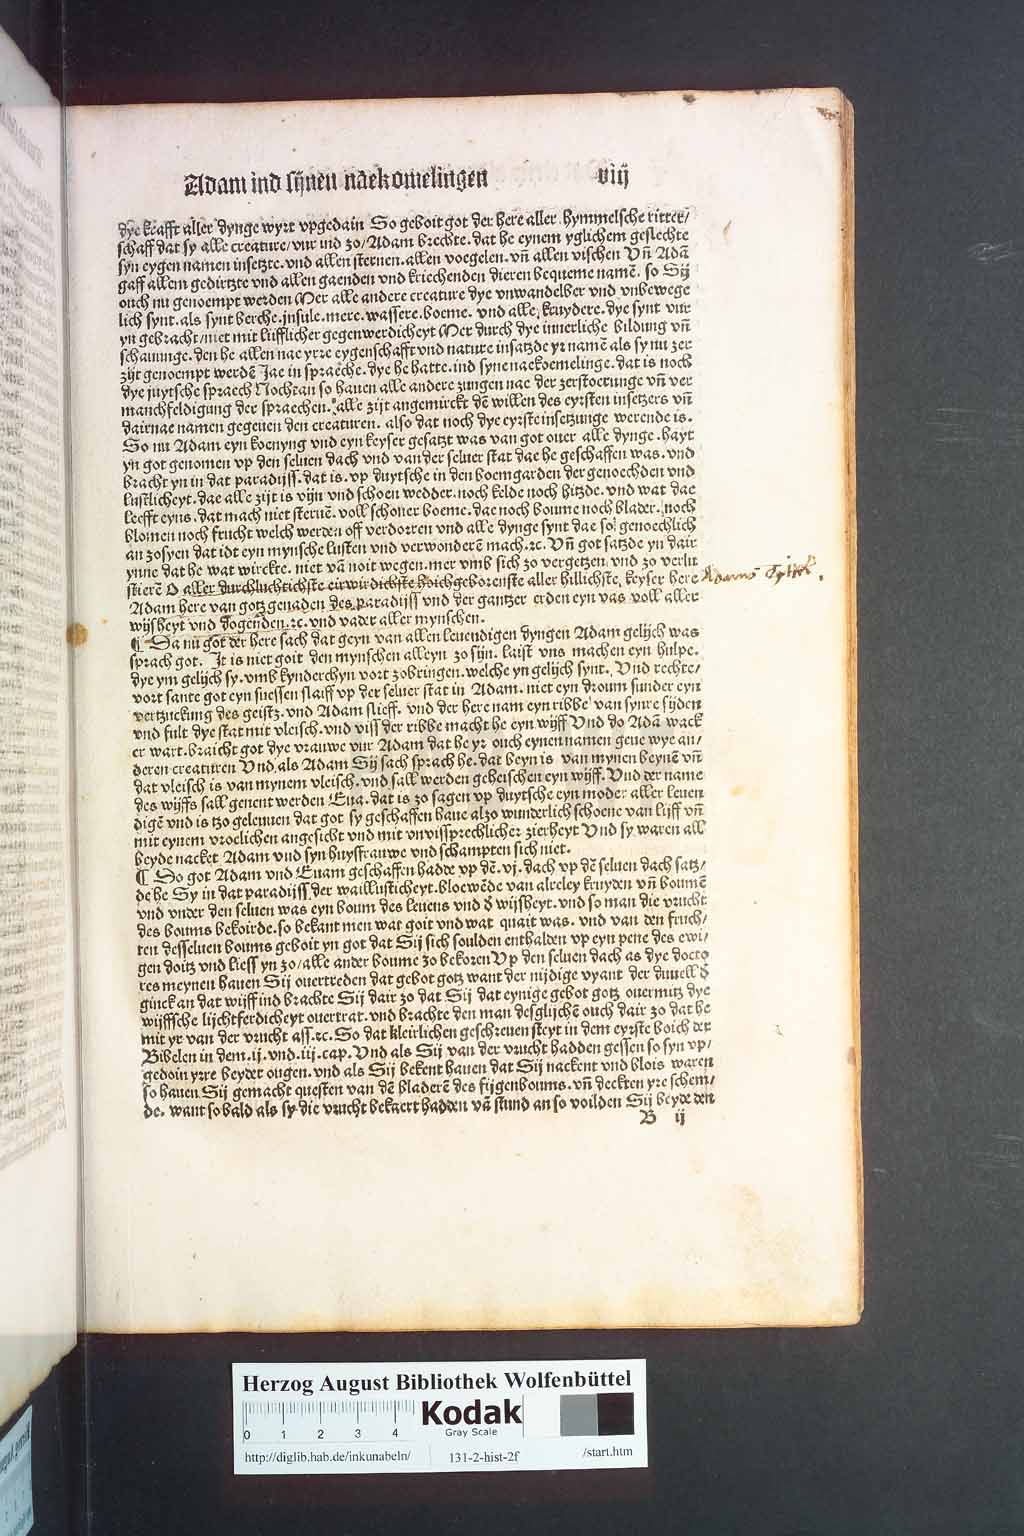 Adam ind sÿnen naekomelingen viij
dye krafft aller dynge wyrt vpgedain So geboit got der here aller hymmelsche ritter/
schaff dat sy alle creature/vur ind zo/Adam brechte. dat he eynem yglichem geslechte
syn eygen namen insetzte. vnd allen sternen. allen voegelen. vñ allen vischen Vñ Adã
gaff allem gedirtzte vnd allen gaenden vnd kriechenden dieren bequeme namẽ. so Sij
ouch nu genoempt werden Mer alle andere creature dye vnwandelber vnd vnbewege
lich synt. als synt berche. insule. mere. wassere. boeme. vnd alle kruydere. dye synt vur
yn gebracht/niet mit lijfflicher gegenwerdicheyt Mer durch dye innerliche bildung vñ
schauunge. den he allen nae yrre eygenschafft vnd nature insatzde yr namẽ als sy nu zer
zijt genoempt werdẽ Jae in spraeche. dye he hatte. ind syne naekoemelinge. dat is noch
dye juytsche spraech Nochtan so hauen alle andere zungen nae der zerstoerunge vñ ver
manchfeldigung der spraechen. alle zijt angemirckt dẽ willen des eyrsten insetzers vñ
dairnae namen gegeuen den creaturen. also dat noch dye eyrste insetzunge werende is.
So nu Adam eyn koenyng vnd eyn keyser gesatzt was van got ouer alle dynge. hayt
yn got genomen vp den seluen dach vnd van der seluer stat dae he geschaffen was. vnd
bracht yn in dat paradijss. dat is. vp duytsche in den boemgarden der genoechden vnd
lustlicheyt. dae alle zijt is vijn vnd schoen wedder. noch kelde noch hitzde. vnd wat dae
leefft eyns. dat mach niet steruẽ. voll schoner boeme. dae noch boume noch blader. noch
blomen noch frucht welch werden off verdorren vnd alle dynge synt dae so genoechlich
an zosyen dat idt eyn mynsche lusten vnd verwonderẽ mach. ꝛc. Vñ got satzde yn dair
ynne dat he wat wirckte. niet vã noit wegen. mer vmb sich zo vergetzen. vnd zo verlu
stierẽ O aller durchluchtichste eirwirdichste hoichgeborenste aller hillichste. keyser here
Adam here van gotz genaden des paradijss vnd der gantzer erden eyn vas voll aller
wijsheyt vnd dogenden. ꝛc. vnd vader aller mynschen.
¶ Da nu got der here sach dat geyn van allen leuendigen dyngen Adam gelijch was
sprach got. It is niet goit den mynschen alleyn zo sijn. laist vns machen eyn hulpe.
dye ym gelijch sy. vmb kynderchyn vort zobringen. welche yn gelijch synt. Vnd rechte/
vort sante got eyn suessen slaiff vp der seluer stat in Adam. niet eyn droum sunder eyn
vertzuckung des geistz. vnd Adam slieff. vnd der here nam eyn ribbe van synre sijden
vnd fult dye stat mit vleisch. vnd viss der ribbe macht he eyn wijff Vnd do Adã wack
er wart. braicht got dye vrauwe vur Adam dat he yr ouch eynen namen geue wye an/
deren creaturen Vnd als Adam Sij sach sprach he. dat beyn is van mynen beynẽ vñ
dat vleisch is van mynem vleisch. vnd sall werden geheischen eyn wijff. Vnd der name
des wijffs sall genent werden Eua. dat is zo sagen vp duytsche eyn moder aller leuen
digẽ vnd is tzo geleuuen dat got sy geschaffen haue alzo wunderlich schoene van lijff vñ
mit eynem vroelichen angesicht vnd mit vnvissprechlicher zierheyt Vnd sy waren all
beyde nacket Adam vnd syn huysfrauwe vnd schampten sich niet.
¶ So got Adam vnd Euam geschaffen hadde vp dẽ. vj. dach vp dẽ seluen dach satz/
de he Sy in dat paradijss der waillusticheyt. bloewẽde van alreley kruyden vñ boumẽ
vnd vnder den seluen was eyn boum des leuens vnd d wijsheyt. vnd so man die vrucht
des boums bekoirde. so bekant men wat goit vnd wat quait was. vnd van den fruch/
ten desseluen boums geboit yn got dat Sij sich soulden enthalden vp eyn pene des ewi/
gen doitz vnd liess yn zo/alle ander boume zo bekoren Vp den seluen dach as dye docto
res meynen hauen Sij ouertreden dat gebot gotz want der nijdige vyant der duuell d
ginck an dat wijff ind brachte Sij dair zo dat Sij dat eynige gebot gotz ouermitz dye
wijffsche lijchtferdicheyt ouertrat. vnd brachte den man desglijchẽ ouch dair zo dat he
mit yr van der vrucht ass. ꝛc. So dat kleirlichen geschreuen steyt in dem eyrste boich der
Bibelen in dem. ij. vnd. iij. cap. Vnd als Sij van der vrucht hadden gessen so syn vp/
gedoin yrre beyder ougen. vnd als Sij bekent hauen dat Sij nackent vnd blois waren
so hauen Sij gemacht questen van dẽ bladerẽ des fijgenboums. vñ deckten yre schem/
de. want so bald als sy die vrucht bekaert hadden vã stund an so voilden Sij beyde den
B ij
Herzog August Bibliothek Wolfenbüttel
0 1 2 3 4
Kodak
Gray Scale
http://diglib.hab.de/inkunabeln/ 131-2-hist-2f /start.htm